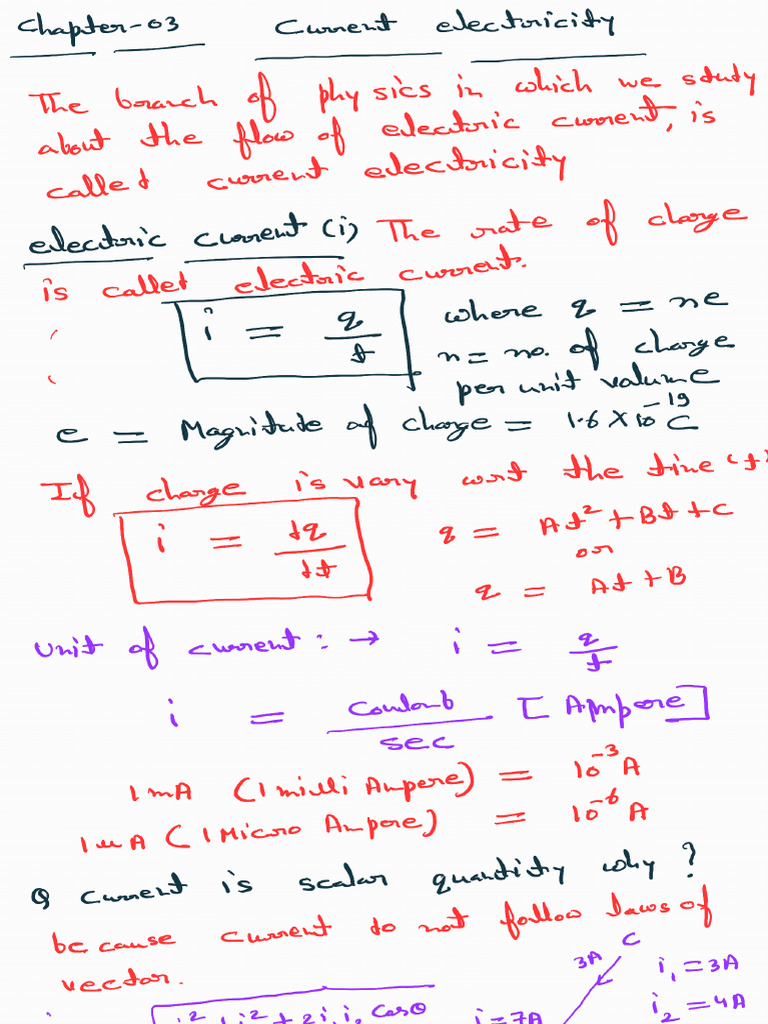 Chapter-03 Current electricity
The branch of physics in which we study
about the flow of electric current, is
called current electricity
electric current (i) The rate of charge
is called electric current.
i = q/t where q = ne
n = no. of charge
per unit valume
e = Magnitude of charge = 1.6 X 10⁻¹⁹ C
If charge is vary wrt the time (t)
i = dq/dt q = At² + Bt + C
or
q = At + B
Unit of current : → i = q/t
i = Coulomb/sec [Ampere]
1 mA (1 milli Ampere) = 10⁻³ A
1 μA (1 Micro Ampere) = 10⁻⁶ A
Q Current is scalar quantity why ?
because current do not follow laws of
vector.
C
3A i₁ = 3A
i₂ = 4A
i = 7A